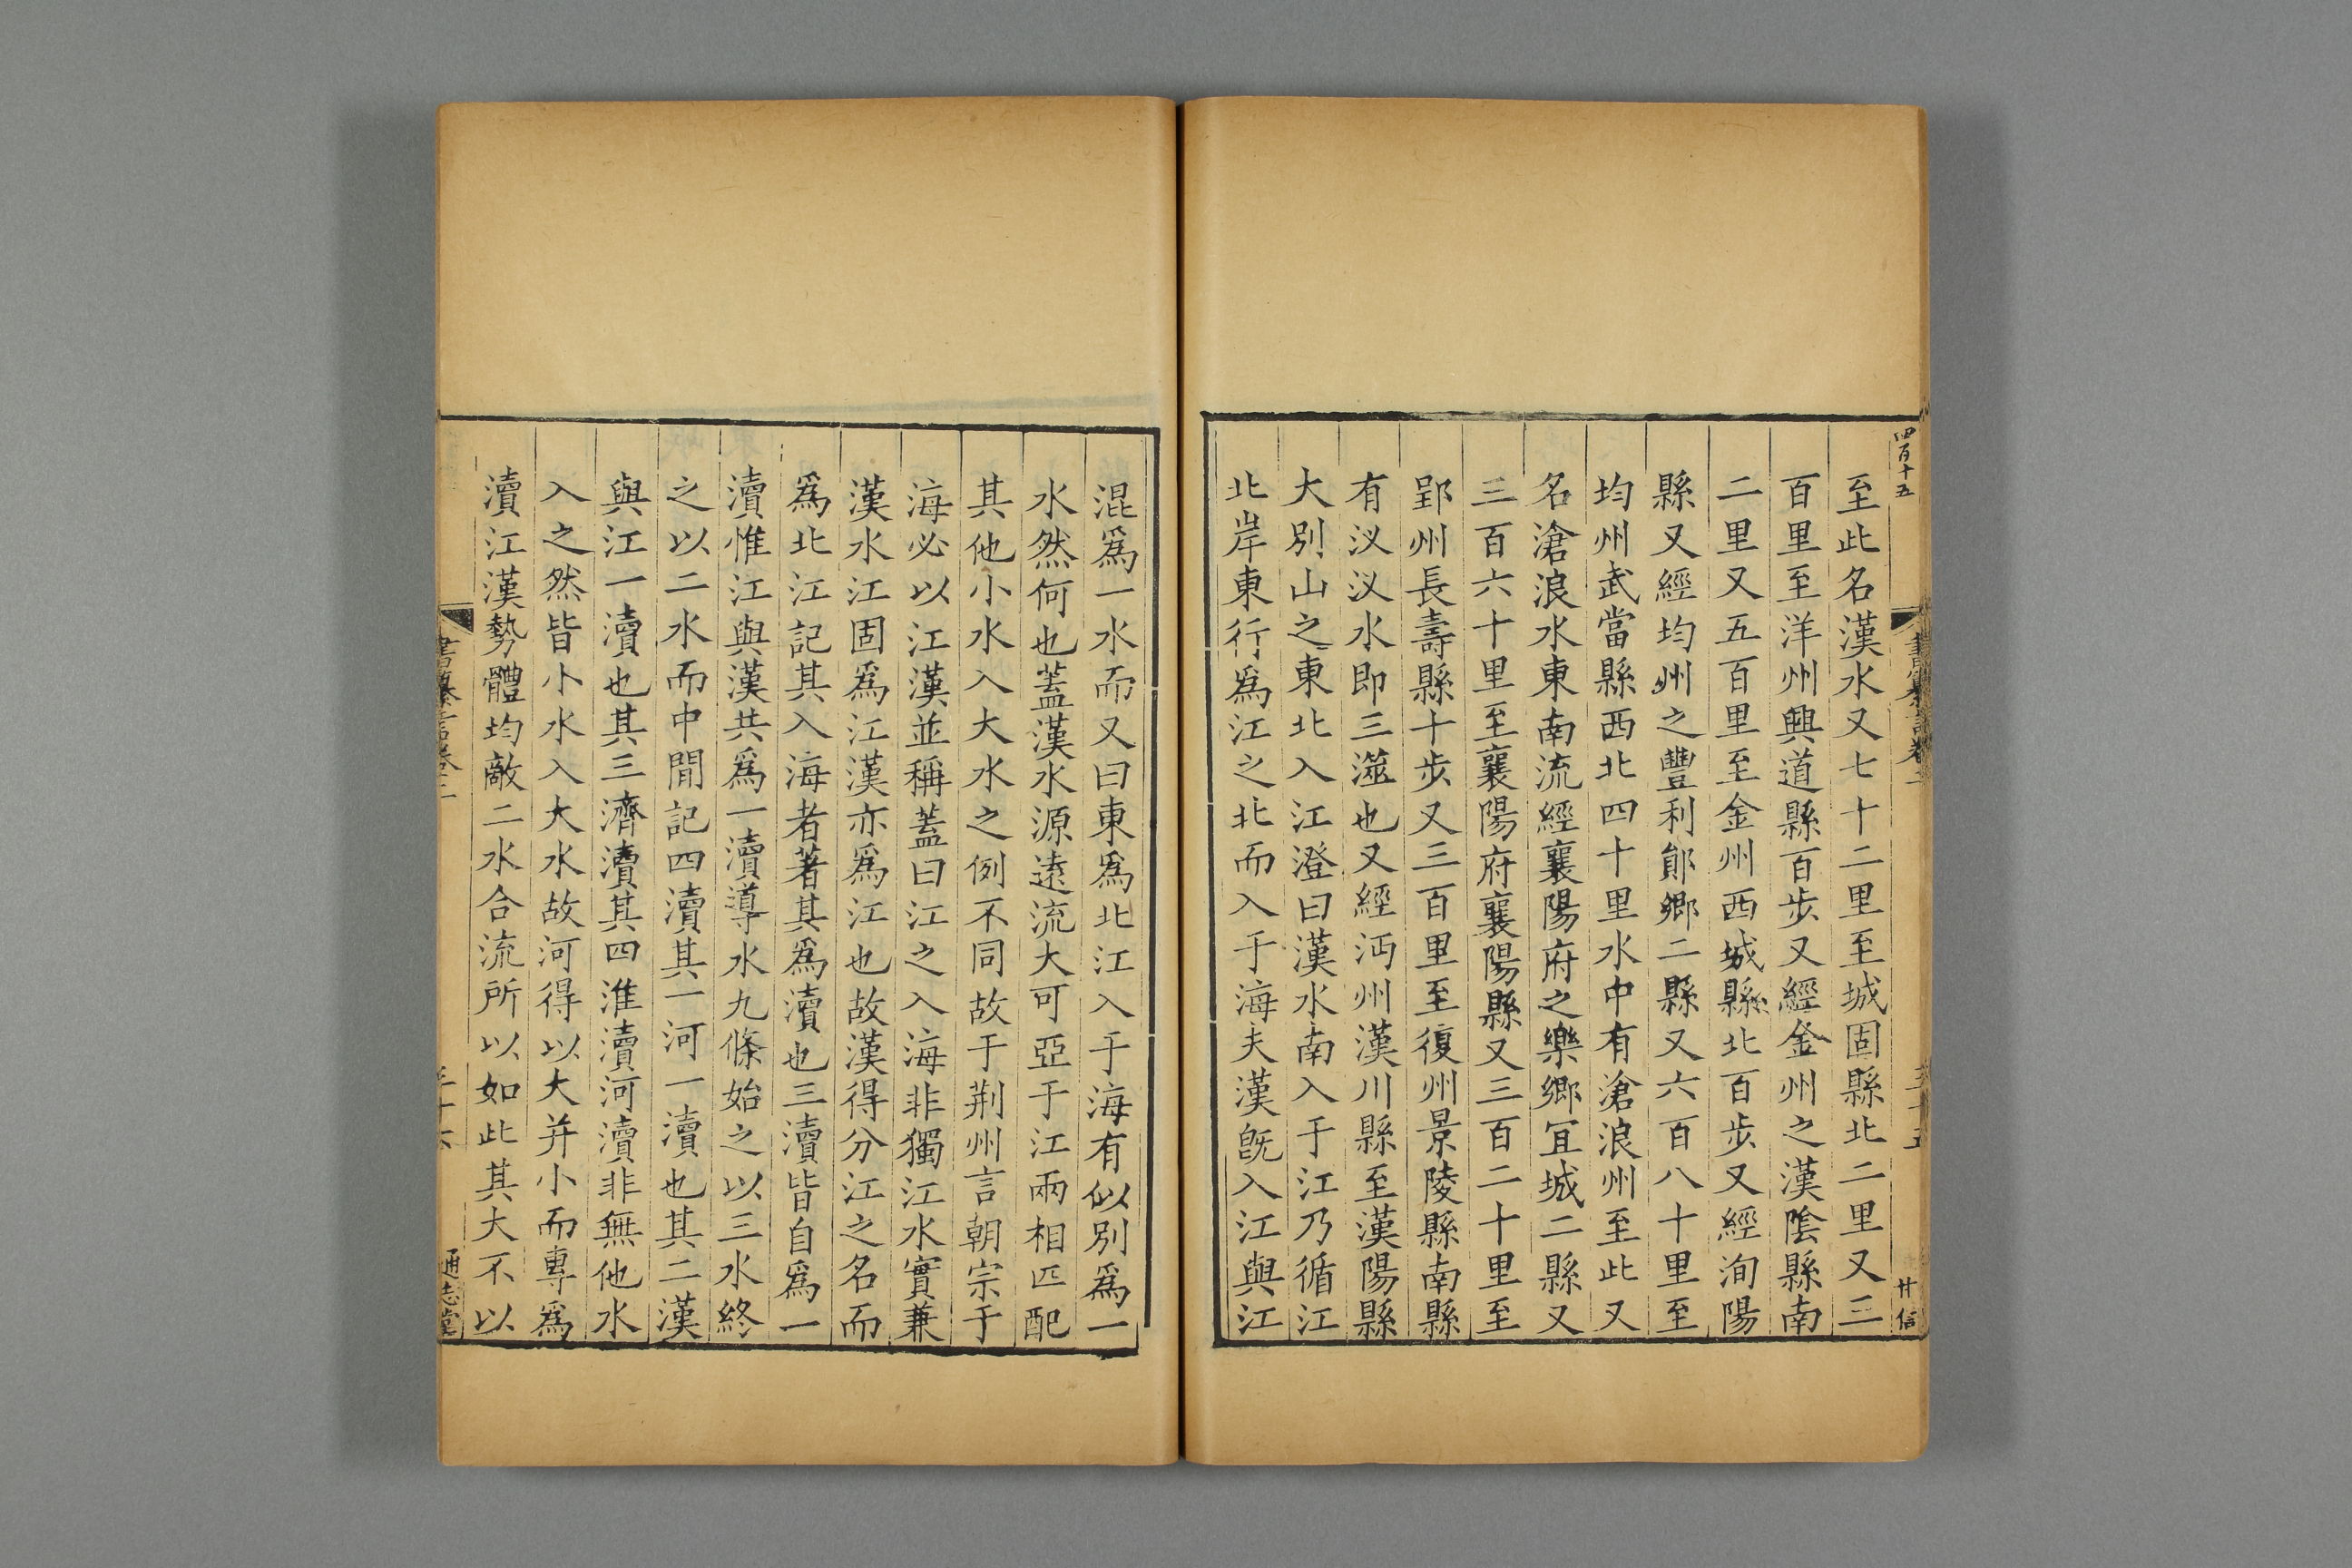 四百十五
書纂言卷二
三十五
甘信
至此名漢水又七十二里至城固縣北二里又三
百里至洋州興道縣百步又經金州之漢隂縣南
二里又五百里至金州西城縣北百步又經洵陽
縣又經均州之豐利鄖鄉二縣又六百八十里至
均州武當縣西北四十里水中有滄浪州至此又
名滄浪水東南流經襄陽府之樂鄉冝城二縣又
三百六十里至襄陽府襄陽縣又三百二十里至
郢州長壽縣十步又三百里至復州景陵縣南縣
有汊汊水即三澨也又經沔州漢川縣至漢陽縣
大別山之東北入江澄曰漢水南入于江乃循江
北岸東行爲江之北而入于海夫漢旣入江與江
混爲一水而又曰東爲北江入于海有似別爲一
水然何也蓋漢水源遠流大可亞于江兩相匹配
其他小水入大水之例不同故于荆州言朝宗于
海必以江漢並稱蓋曰江之入海非獨江水實兼
漢水江固爲江漢亦爲江也故漢得分江之名而
爲北江記其入海者著其爲瀆也三瀆皆自爲一
瀆惟江與漢共爲一瀆導水九條始之以三水終
之以二水而中閒記四瀆其一河一瀆也其二漢
與江一瀆也其三濟瀆其四淮瀆河瀆非無他水
入之然皆小水入大水故河得以大并小而專爲
瀆江漢勢體均敵二水合流所以如此其大不以
書纂言卷二
三十六
通志堂